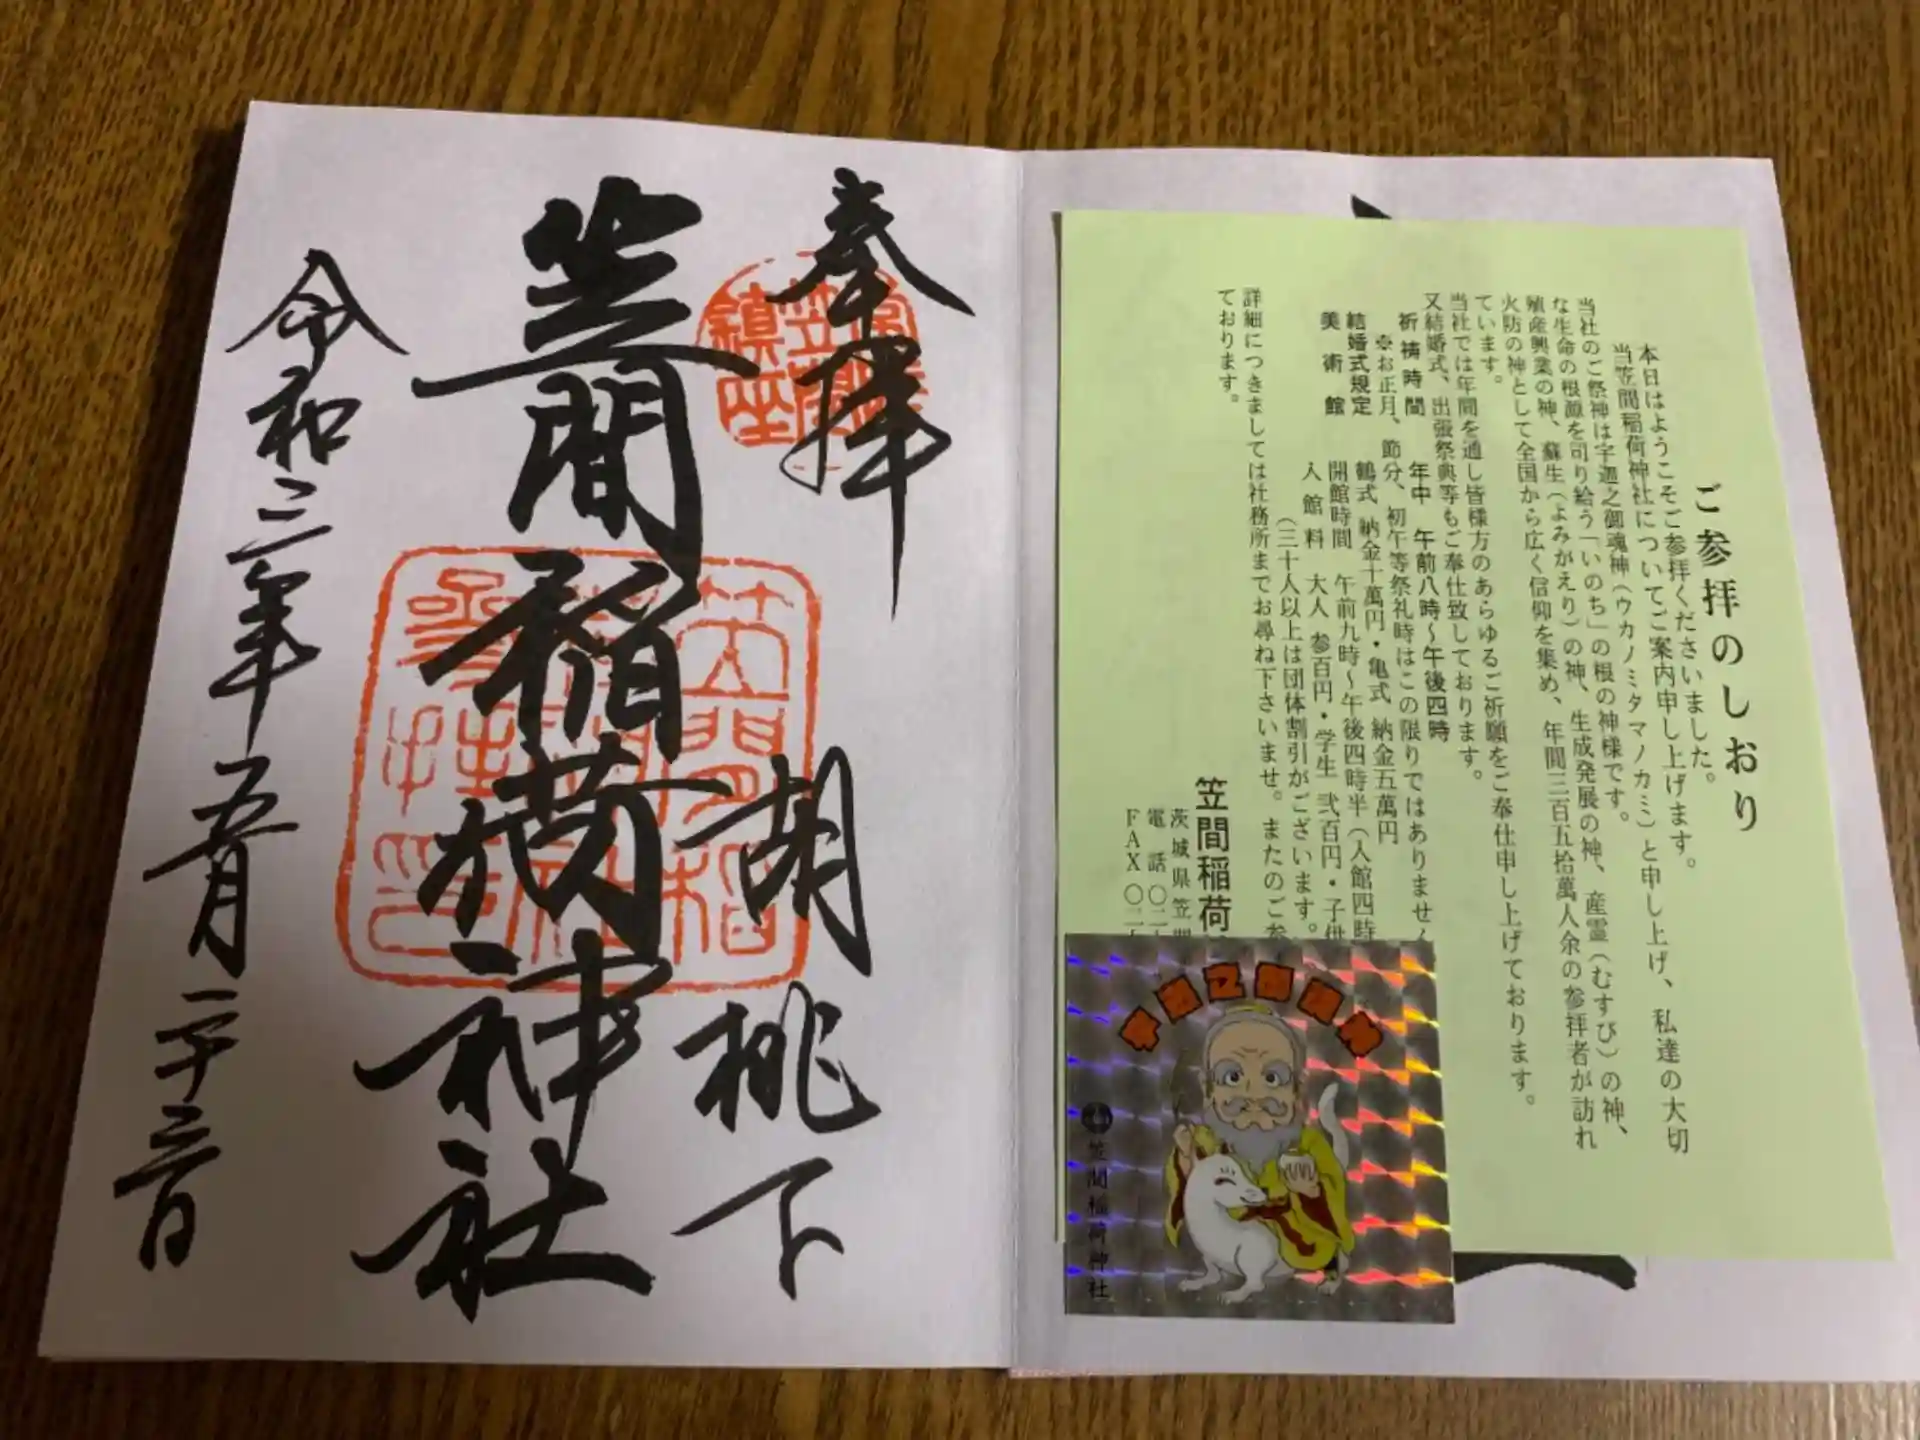 ご参拝のしおり
本日はようこそご参拝くださいました。
当笠間稲荷神社についてご案内申し上げます。
当社のご祭神は宇迦之御魂神（ウカノミタマノカミ）と申し上げ、私達の大切
な生命の根源を司り給う「いのち」の根の神様です。
殖産興業の神、蘇生（よみがえり）の神、生成発展の神、産霊（むすび）の神、
火防の神として全国から広く信仰を集め、年間三百五拾萬人余の参拝者が訪れ
ています。
当社では年間を通し皆様方のあらゆるご祈願をご奉仕申し上げております。
又結婚式、出張祭典等もご奉仕致しております。
祈祷時間 年中 午前八時〜午後四時
※お正月、節分、初午等祭礼時はこの限りではありません
結婚式規定 鶴式 納金十萬円・亀式 納金五萬円
美術館 開館時間 午前九時〜午後四時半（入館四時
入館料 大人 参百円・学生 弐百円・子供
（三十人以上は団体割引がございます。
詳細につきましては社務所までお尋ね下さいませ。またのご参
ております。
笠間稲荷
茨城県笠間
電話〇二
FAX〇二
宇迦之御魂神
笠間稲荷神社
奉拝
笠間
鎮座
胡桃下
笠間稲荷神社
令和三年五月二十三日